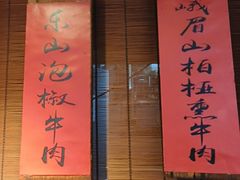 乐山泡椒牛肉
峨眉山柏枝熏牛肉